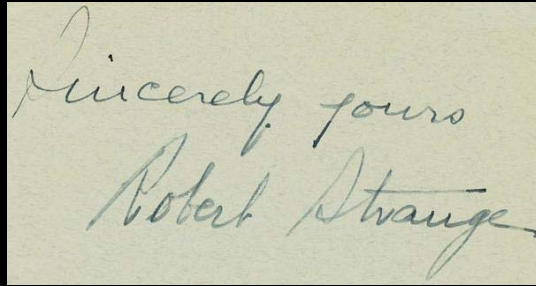 Sincerely yours
Robert Strange